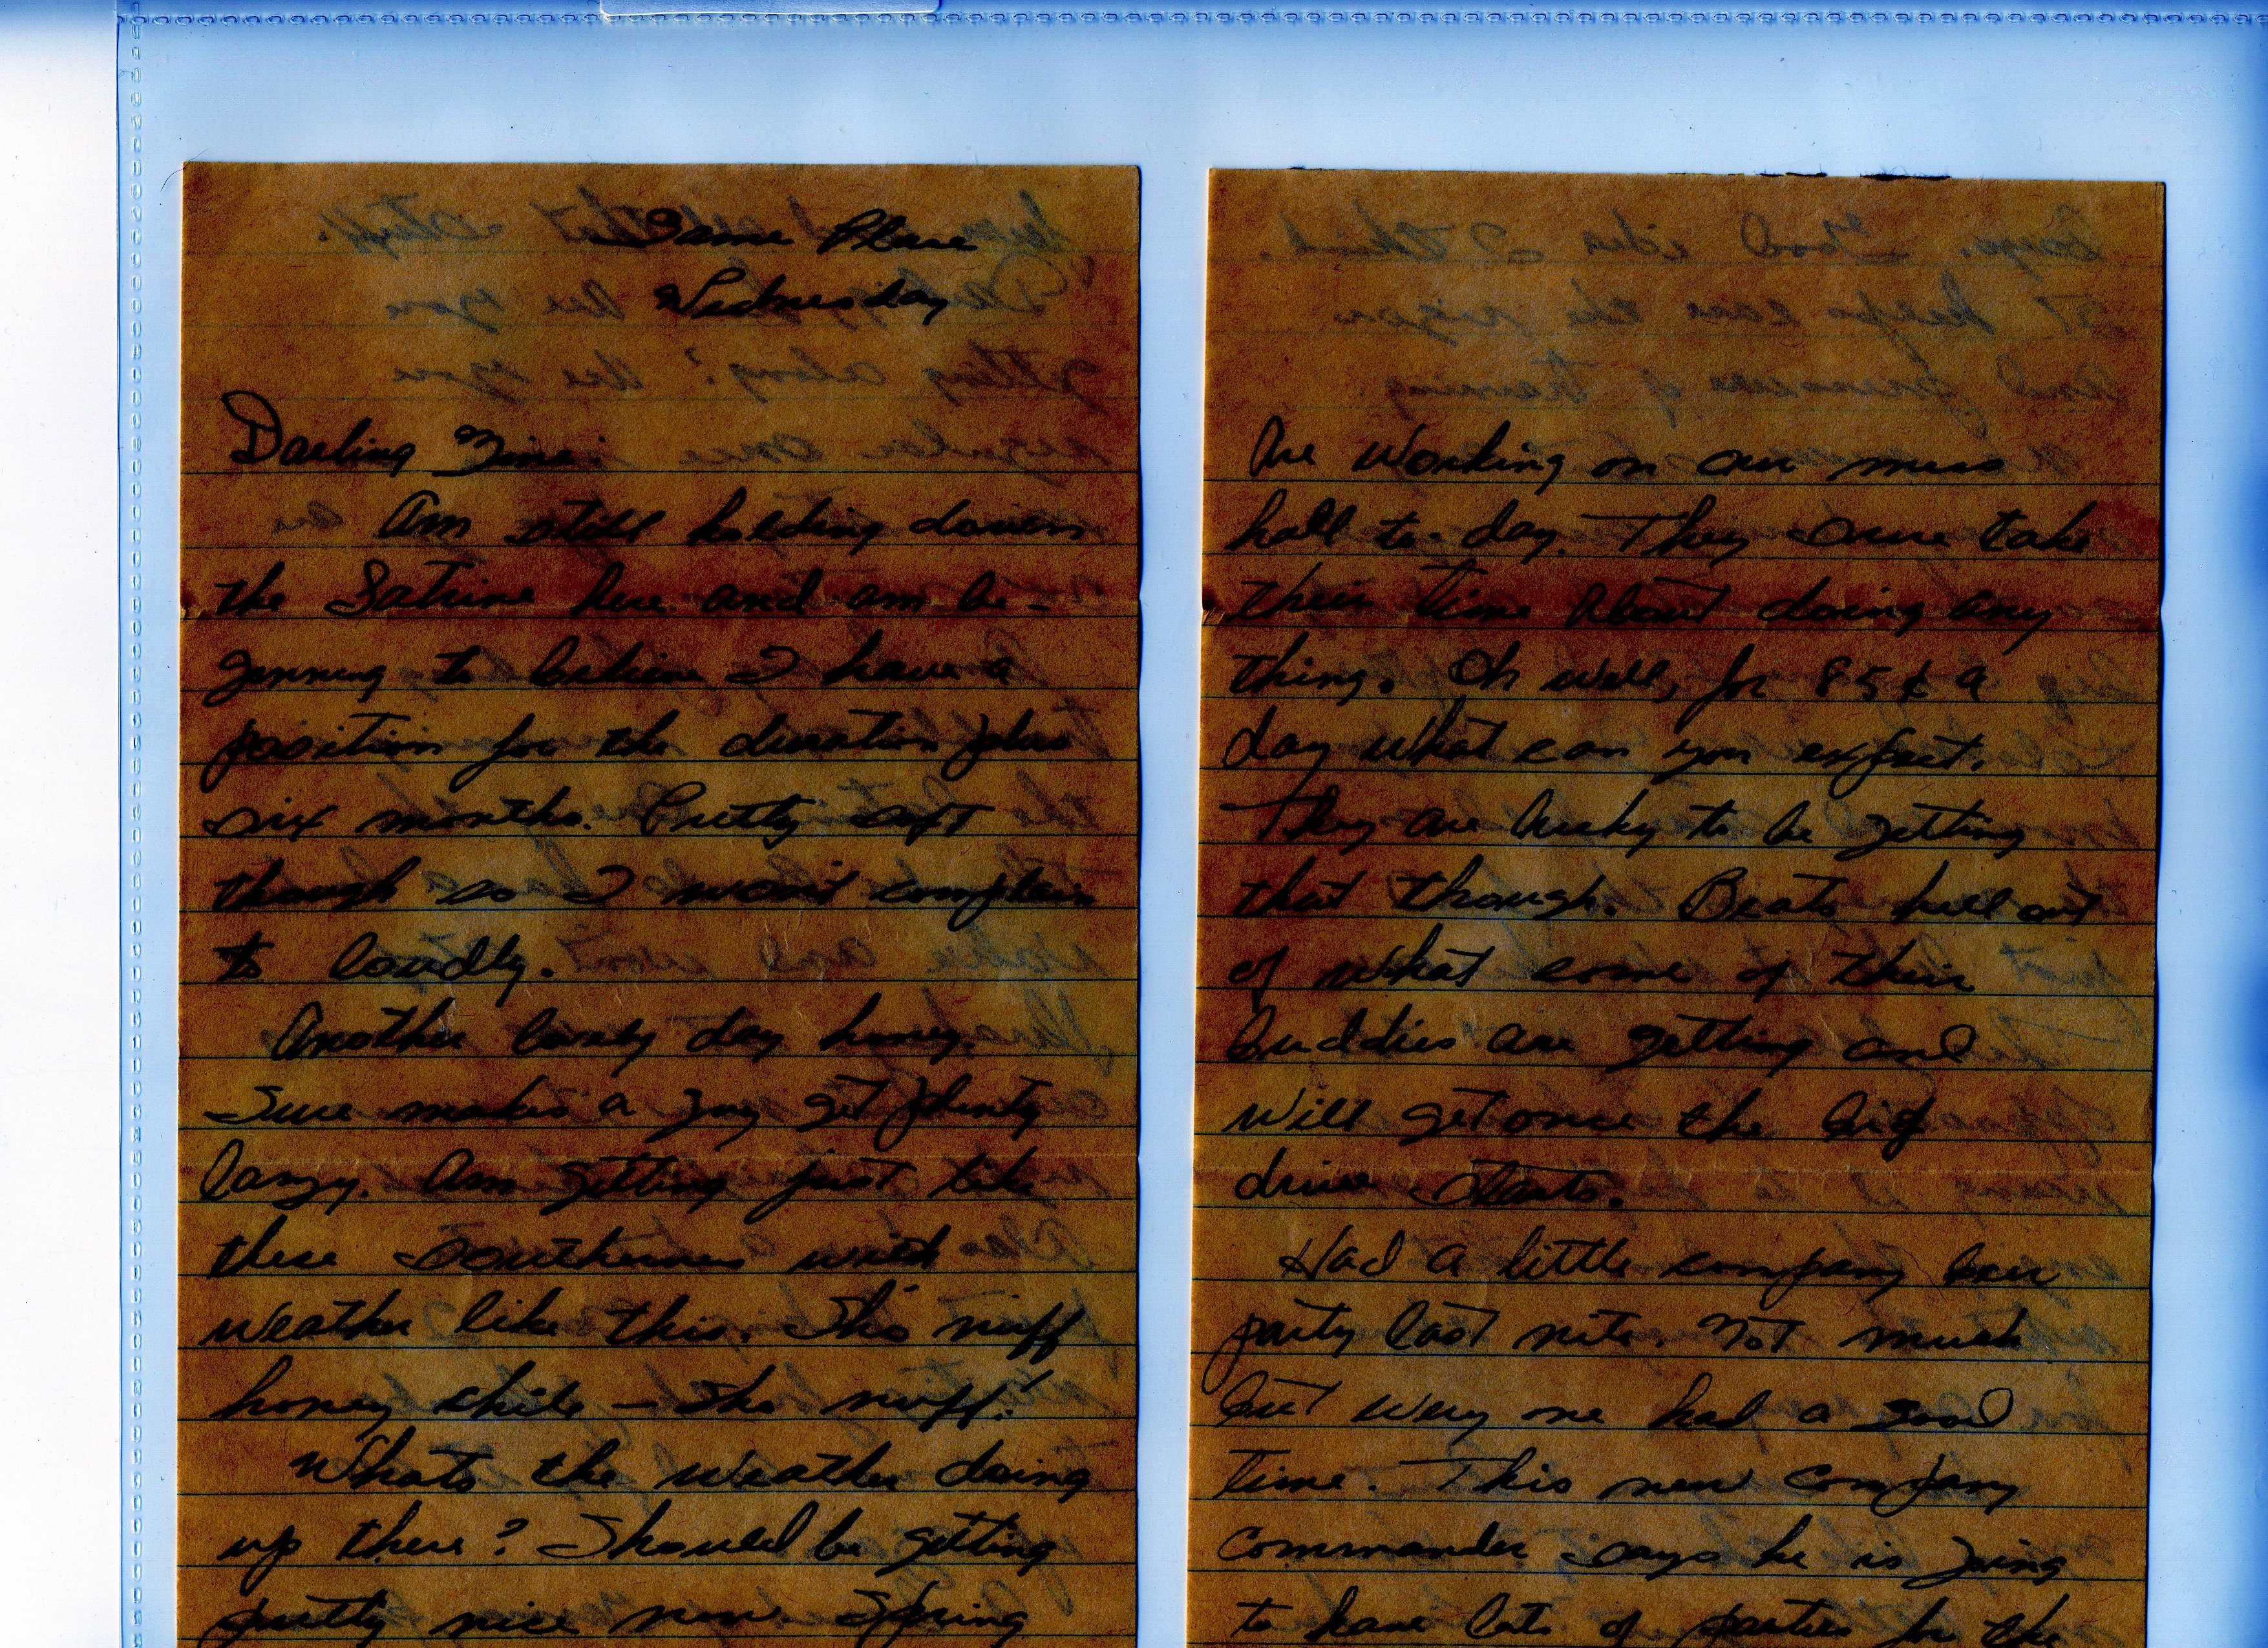 Same Place
Wednesday
Darling Mine:
Am still holding down
the Latrine here and am be-
ginning to believe I have a
position for the duration plus
six months. Pretty soft
though so I won't complain
to loudly.
Another lovely day honey.
Sure makes a guy get plenty
lazy. Am getting just like
these Southerners with
weather like this. Sho' nuff
honey chile - Sho nuff!
Whats the weather doing
up there? Should be getting
pretty nice now. Spring
are working on our mess
hall to-day. They sure take
their time about doing any
thing. Oh well, for 85¢ a
day what can you expect.
They are lucky to be getting
that though. Beats hell out
of what some of their
buddies are getting and
will get once the big
drive starts.
Had a little company beer
party last nite. Not much
but every one had a good
time. This new Company
Commander says he is going
to have lots of parties for the